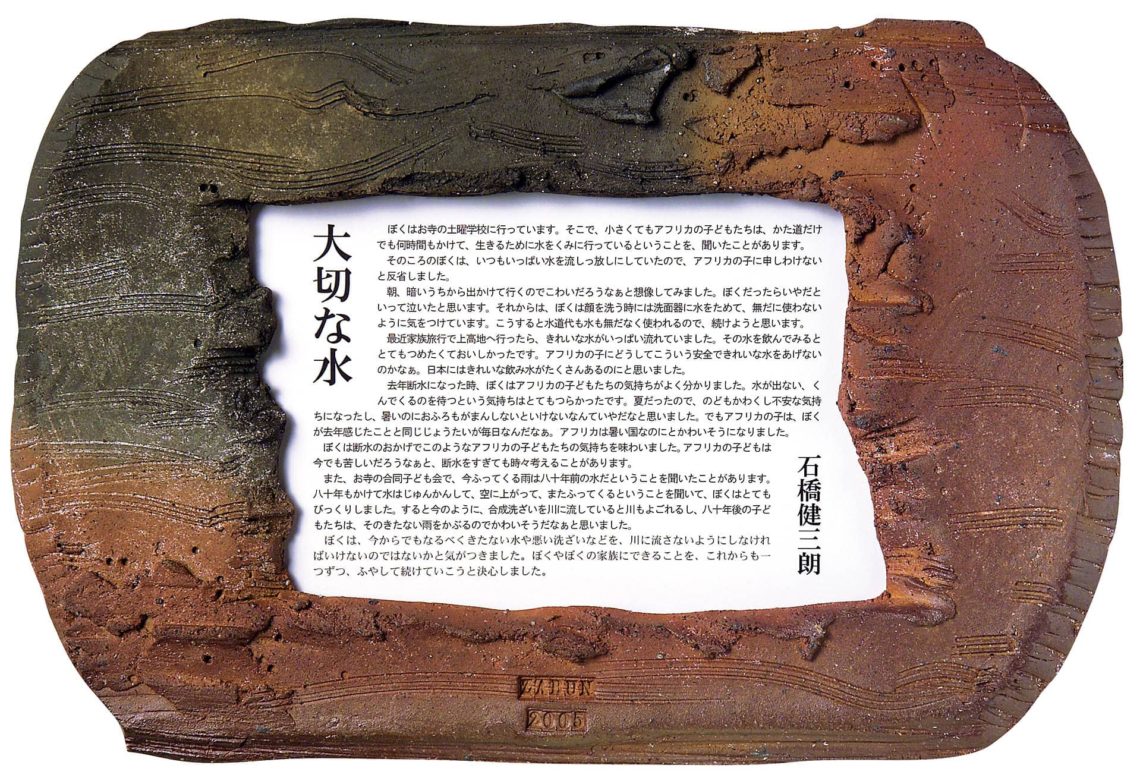 大切な水
　ぼくはお寺の土曜学校に行っています。そこで、小さくてもアフリカの子どもたちは、かた道だけ
でも何時間もかけて、生きるために水をくみに行っているということを、聞いたことがあります。
　そのころのぼくは、いつもいっぱい水を流しっ放しにしていたので、アフリカの子に申しわけない
と反省しました。
　朝、暗いうちから出かけて行くのでこわいだろうなぁと想像してみました。ぼくだったらいやだと
いって泣いたと思います。それからは、ぼくは顔を洗う時には洗面器に水をためて、無だに使わない
ように気をつけています。こうすると水道代も水も無だなく使われるので、続けようと思います。
　最近家族旅行で上高地へ行ったら、きれいな水がいっぱい流れていました。その水を飲んでみると
とてもつめたくておいしかったです。アフリカの子にどうしてこういう安全できれいな水をあげない
のかなぁ。日本にはきれいな飲み水がたくさんあるのにと思いました。
　去年断水になった時、ぼくはアフリカの子どもたちの気持ちがよく分かりました。水が出ない、く
んでくるのを待つという気持ちはとてもつらかったです。夏だったので、のどもかわくし不安な気持
ちになったし、暑いのにおふろもがまんしないといけないなんていやだなと思いました。でもアフリカの子は、ぼく
が去年感じたことと同じじょうたいが毎日なんだなぁ。アフリカは暑い国なのにとかわいそうになりました。
　ぼくは断水のおかげでこのようなアフリカの子どもたちの気持ちを味わいました。アフリカの子どもは
今でも苦しいだろうなぁと、断水をすぎても時々考えることがあります。
　また、お寺の合同子ども会で、今ふってくる雨は八十年前の水だということを聞いたことがあります。
八十年もかけて水はじゅんかんして、空に上がって、またふってくるということを聞いて、ぼくはとても
びっくりしました。すると今のように、合成洗ざいを川に流していると川もよごれるし、八十年後の子ど
もたちは、そのきたない雨をかぶるのでかわいそうだなぁと思いました。
　ぼくは、今からでもなるべくきたない水や悪い洗ざいなどを、川に流さないようにしなけれ
ばいけないのではないかと気がつきました。ぼくやぼくの家族にできることを、これからも一
つずつ、ふやして続けていこうと決心しました。
石橋健三朗
ZABUN
2005